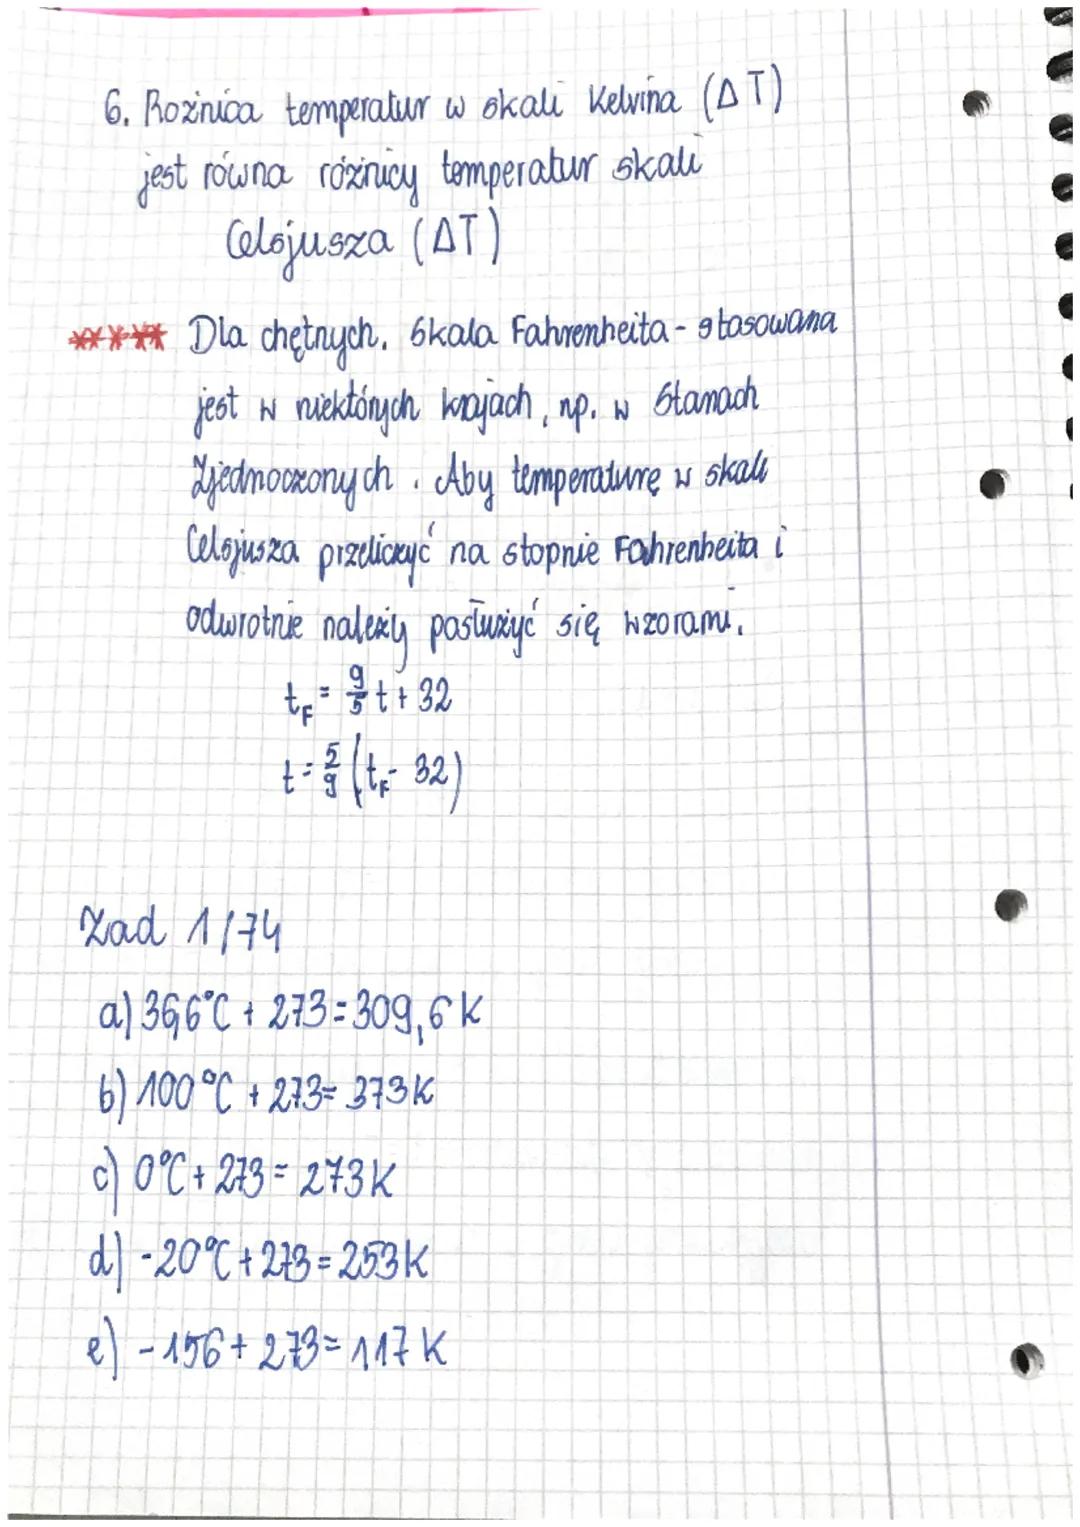 6. Rożnica temperatur w skali Kelvina (ΔT)
jest równa różnicy temperatur skali
Celsjusza (ΔT)
***** Dla chętnych. Skala Fahrenheita - stosowana
jest w niektórych krajach, np. w Stanach
Zjednoczonych. Aby temperaturę w skali
Celsjusza przeliczyć na stopnie Fahrenheita i
odwrotnie należy posłużyć się wzorami.
t_F = 9/5 t + 32
t = 5/9 (t_F - 32)
Zad 1/74
a) 36,6°C + 273 = 309,6 K
b) 100°C + 273 = 373K
c) 0°C + 273 = 273K
d) -20°C + 273 = 253K
e) -156 + 273 = 117 K